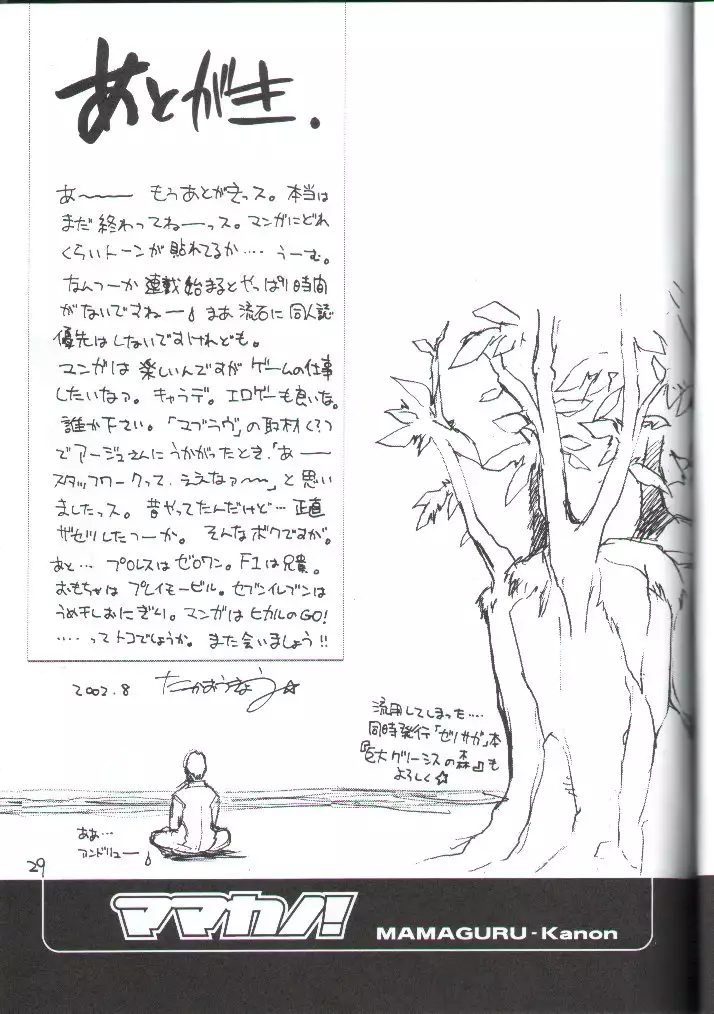 あとがき.
あ〜〜〜 もうあとがきっス。本当は
まだ 終わってねーっス。マンガにどれ
くらいトーンが貼れてるか‥‥ うーむ。
なんつーか 連載始まるとやっぱり時間
がないですねー♪ まあ 流石に 同人誌
優先はしないですけれども。
マンガは 楽しいんですが ゲームの仕事
したいなァ。キャラデ。エロゲーも良いな。
誰か下さい。「マブラヴ」の取材くろう
でアージュさんにうかがったとき、「あ――
スタッフワークって、ええなァ〜〜」と 思い
ましたっス。昔やってたんだけど… 正直
ザセツしたっつーか。そんなボクですが。
あと… プロレスはゼロワン。F1は兄貴。
おもちゃは プレイモービル。セブンイレブンは
うめすしおにぎり。マンガは ヒカルのGO!
‥‥ってトコでしょうか。また会いましょう!!
2002.8 たかおうすう☆
流用してしまった‥‥
同時発行「ゼノサガ」本
『巨大グリーシスの森』も
よろしく☆
ああ…
アンドリュー
29
ママカノ!
MAMAGURU-Kanon